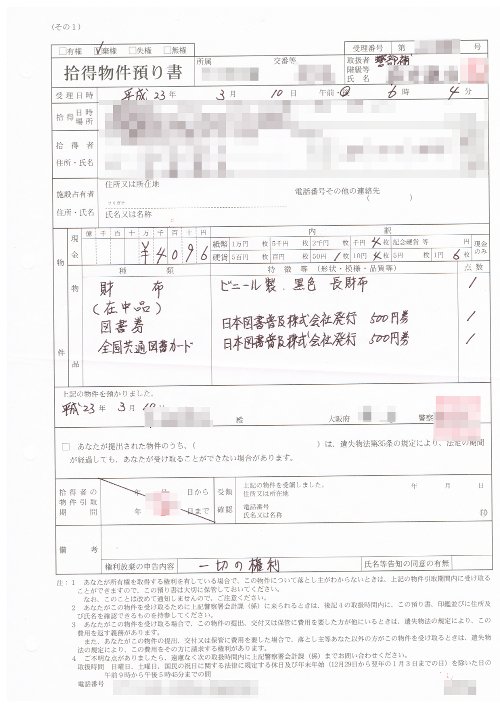 (その1)
□有権 ☑棄権 □失権 □無権
受理番号 第 号
拾得物件預り書
所属 交番等 取扱者 階級等 氏名 警部補
受理日時 平成23年 3月 10日 午前・後 6時 4分
拾得 日時 場所
拾得者
住所・氏名
施設占有者
住所・氏名
住所又は所在地
電話番号その他の連絡先
( )
氏名又は名称
物件
現金 億 千 百 十 万 千 百 十 円
¥4096
内訳
紙幣 1万円 枚 5千円 枚 2千円 枚 千円 4枚 記念硬貨等 円
硬貨 5百円 枚 百円 枚 50円 1枚 10円 4枚 5円 枚 1円 6枚
現金のみ
物品
種類 特徴等(形状・模様・品質等) 点数
財布 ビニール製、黒色 長財布 1
(在中品)
図書券 日本図書普及株式会社発行 500円券 1
全国共通図書カード 日本図書普及株式会社発行 500円券 1
上記の物件を預かりました。
平成23年 3月 10日
殿 大阪府 警察
□ あなたが提出された物件のうち、( )は、遺失物法第35条の規定により、法定の期間
が経過しても、あなたが受け取ることができない場合があります。
拾得者の物件引取期間
年 月 日から
年 月 日まで
受領確認
上記の物件を受領しました。 年 月 日
住所又は所在地
電話番号
氏名又は名称 ㊞
備考
権利放棄の申告内容 一切の権利 氏名等告知の同意の有無
注:1 あなたが所有権を取得する権利を有している場合で、この物件について落とし主がわからないときは、上記の物件引取期間内に受け取る
ことができますので、この預り書は大切に保管しておいてください。
なお、このことは改めて通知しませんので、ご注意ください。
2 あなたが物件を受け取るために上記警察署会計課(係)に来られるときは、後記4の取扱時間内に、この預り書、印鑑並びに住所及
び氏名を確認できるものを持参してください。
3 あなたが物件を受け取る場合で、この物件の提出、交付又は保管に費用を要した方が他にいるときは、遺失物法の規定により、この
費用を返す義務があります。
また、あなたがこの物件の提出、交付又は保管に費用を要した場合で、落とし主等あなた以外の方がこの物件を受け取るときは、遺失物
法の規定により、この費用をその方に請求する権利があります。
4 ご不明な点がありましたら、遠慮なく次の取扱時間内に上記警察署会計課(係)までお問い合わせください。
取扱時間 日曜日、土曜日、国民の祝日に関する法律に規定する休日及び年末年始(12月29日から翌年の1月3日までの日)を除いた日の
午前9時から午後5時45分までの間
電話番号